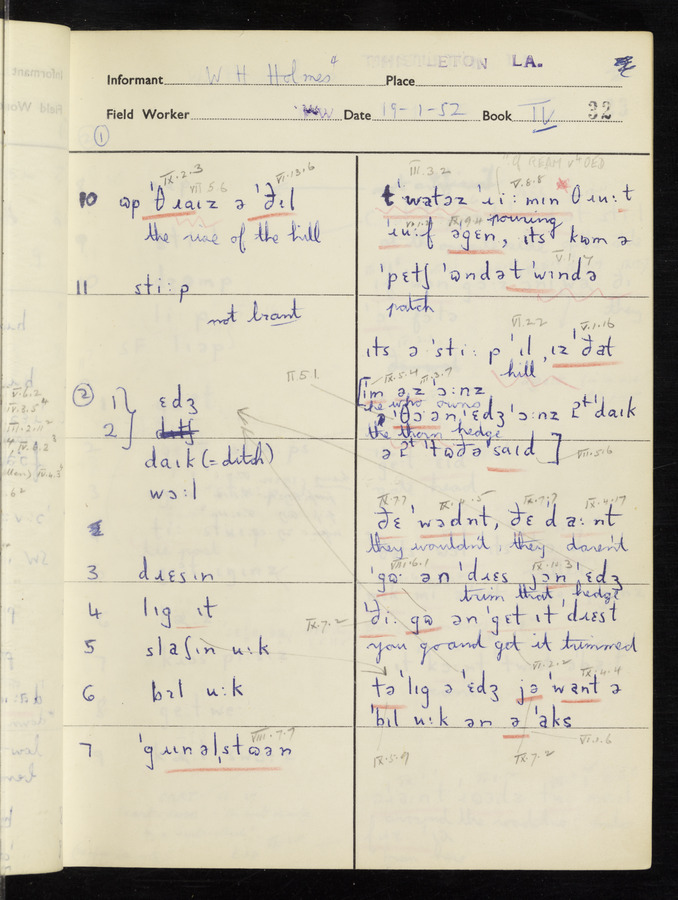 THISTLETON LA.
Informant W H Holmes 4 Place
Field Worker Date 19-1-52 Book IV 32
①
IX.2.3 VI.13.6
VII 5.6
10 ɷp ˈθɹaɪz ə ˈðɪl
the rise of the hill
11 sti:p
not brant
II.5.1.
② 1 ɛdʒ
2
daɪk (= ditch)
wɔ:l
3 dɹɛsɪn
4 lɪg ɪt
IX.7.2
5 slaʃɪn u:k
6 bɪl u:k
VIII.7.7
7 ˈgɹɪnəlˌstɷən
III.3.2
V.6.8
t ˈwatəz ˈɹi:mɪn θɹu: t
pouring
ˈɹu:f əgɛn, ɪts kɷm ə
V.1.7
ˈpɛtʃ ˈɷndət ˈwɪndə
patch
VI.2.2 V.1.16
ɪts ə ˈsti:p ˈɪl, ɪz ˈðat
hill
IX.5.4 III.3.7
ɪm əz ˈɔ:nz
he who owns
ˈθɔən ˈɛdʒ ˈɔ:nz ˈdaɪk
the thorn hedge
ə ˈtɷðə ˈsaɪd]
VII.5.6
IX.7.7 IX.4.5 IX.7.7 IX.4.17
ðɛ ˈwədnt, ðɛ ˈda:nt
they wouldn't, they daren't
VIII.6.1 IX.10.3
ˈgɷ ən ˈdɹɛs jɔn ˈɛdʒ
trim that hedge
ˈði: gɷ ən ˈgɛt ɪt ˈdɹɛst
you go and get it trimmed
VI.2.2 IX.4.4
tə ˈlɪg ə ˈɛdʒ jə ˈwant ə
ˈbɪl u:k ən ə ˈaks
IX.5.9 IX.7.2 VI.1.6